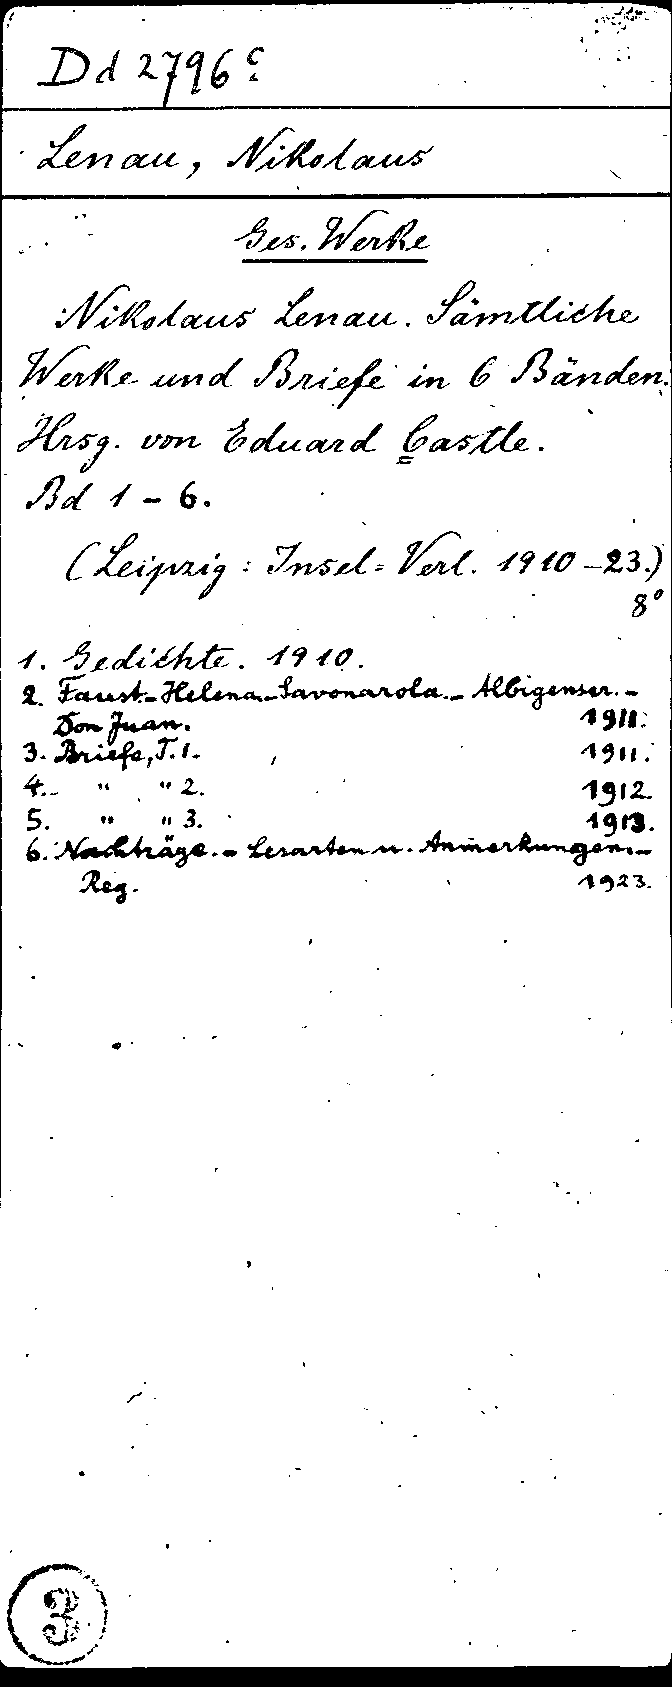 Dd 2796c
Lenau, Nikolaus
Ges. Werke
Nikolaus Lenau. Sämtliche
Werke und Briefe in 6 Bänden.
Hrsg. von Eduard Castle.
Bd 1 - 6.
(Leipzig: Insel-Verl. 1910-23.)
8°
1. Gedichte. 1910.
2. Faust.- Helena.- Savonarola.- Albigenser.-
Don Juan. 1911.
3. Briefe, T. 1. 1911.
4. " " 2. 1912.
5. " " 3. 1913.
6. Nachträge.- Lesarten u. Anmerkungen.-
Reg. 1923.
3